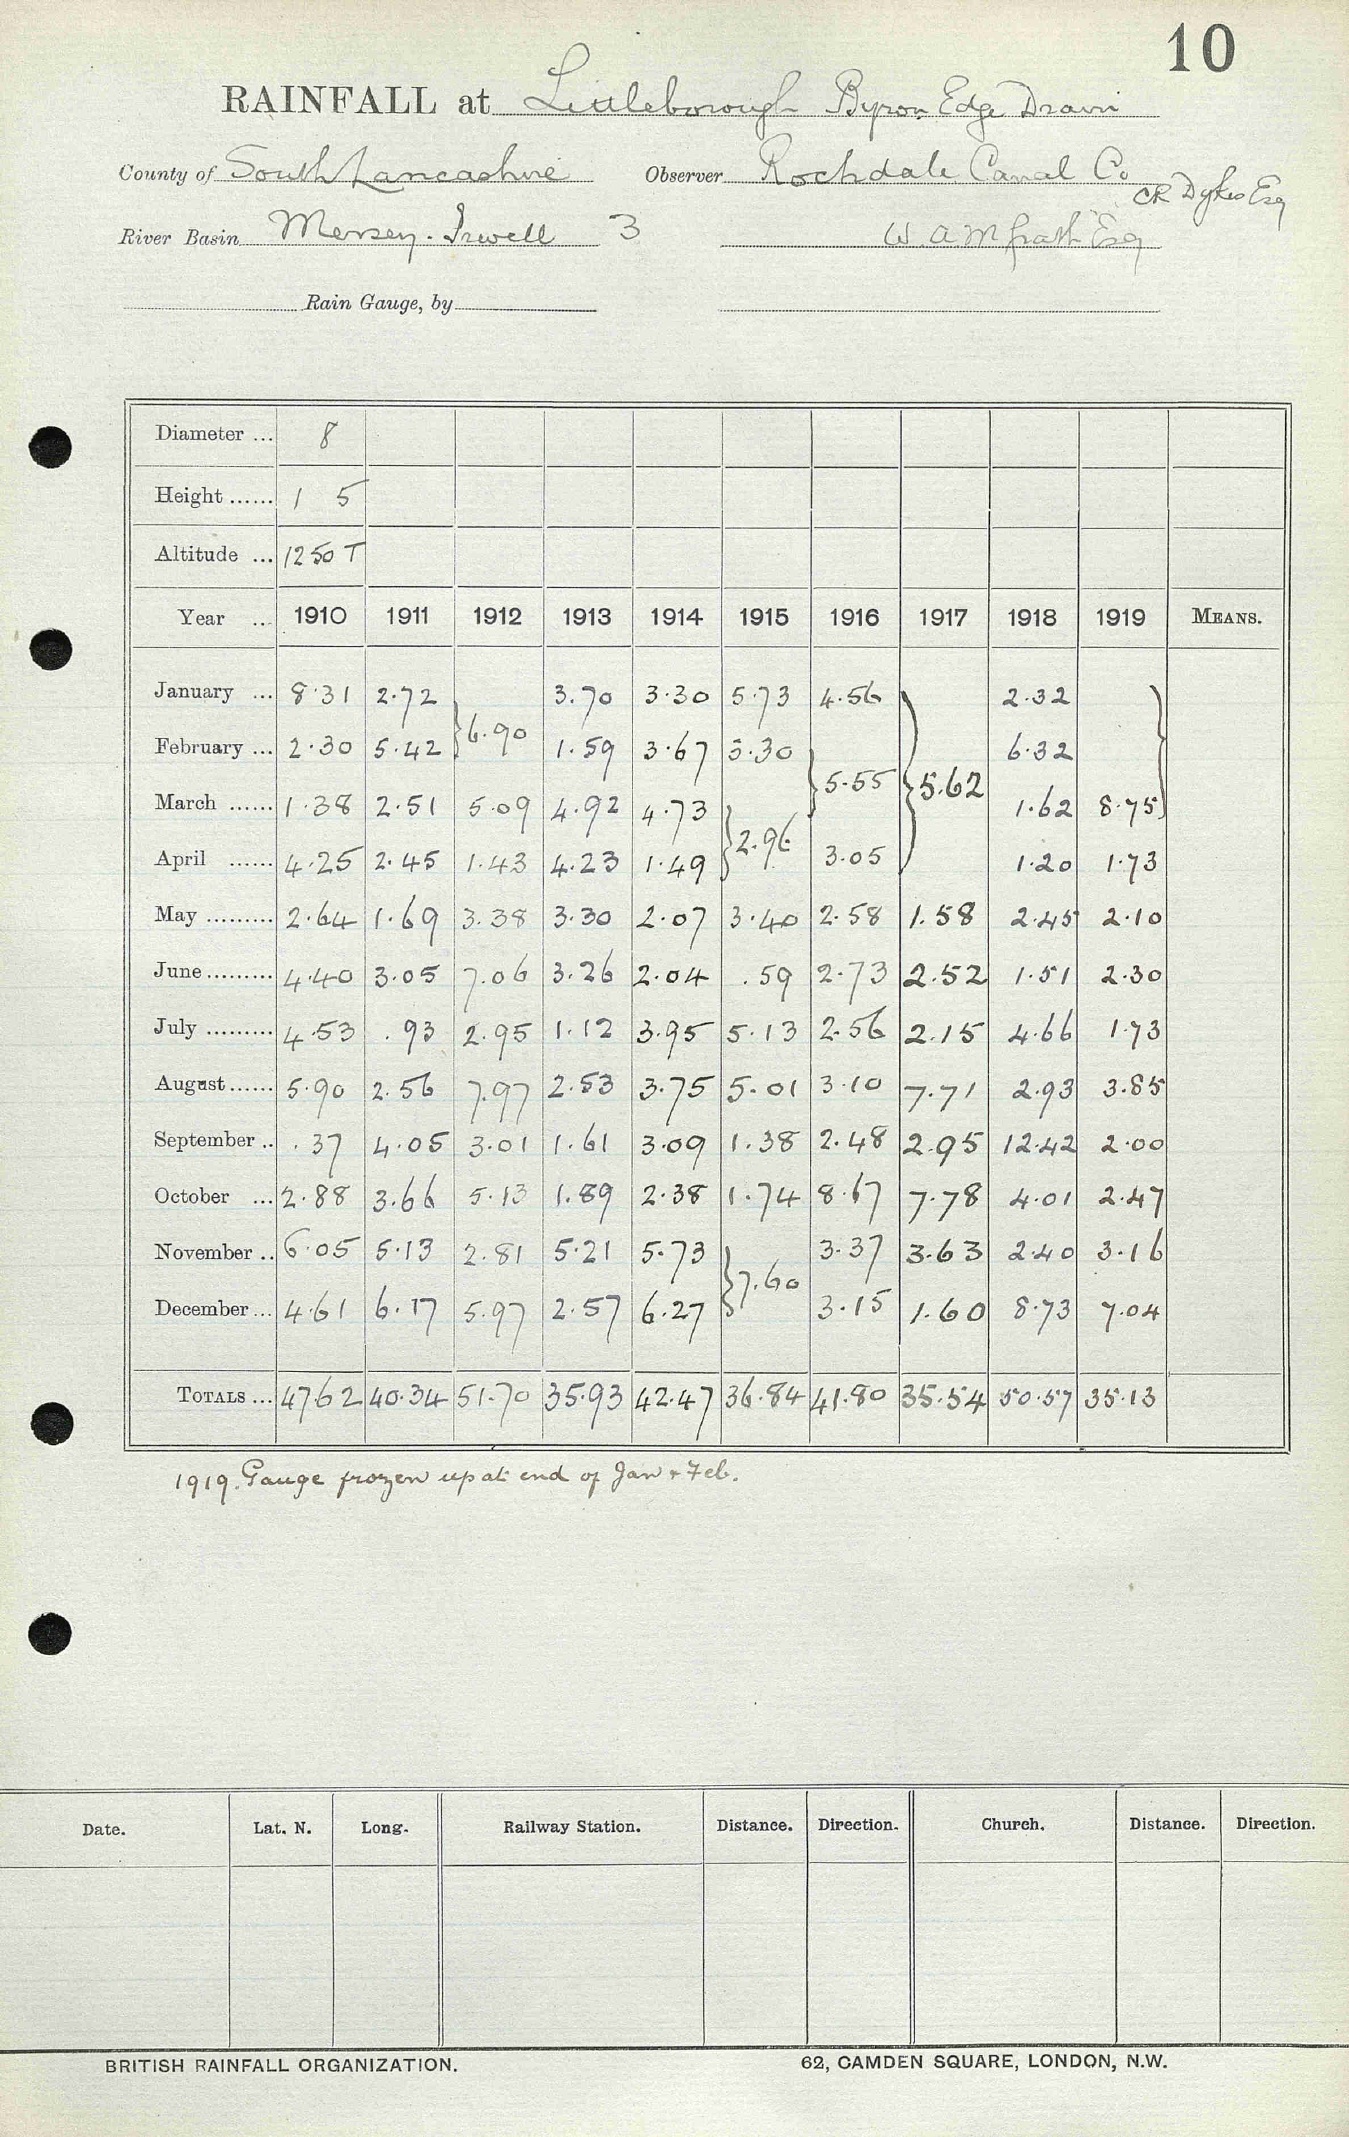 10
RAINFALL at Littleborough Byron Edge Drain
County of South Lancashire Observer Rochdale Canal Co
CR Dykes Esq
River Basin Mersey-Irwell 3 W. A. Esq
Rain Gauge, by
Diameter ... 8
Height ...... 1 5
Altitude ... 1250 T
Year ... 1910 1911 1912 1913 1914 1915 1916 1917 1918 1919 MEANS.
January ... 8.31 2.72 3.70 3.30 5.73 4.56 2.32
6.90
February ... 2.30 5.42 1.59 3.67 3.30 6.32
5.55 5.62
March ...... 1.38 2.51 5.09 4.92 4.73 1.62 8.75
2.96
April ...... 4.25 2.45 1.43 4.23 1.49 3.05 1.20 1.73
May ......... 2.64 1.69 3.38 3.30 2.07 3.40 2.58 1.58 2.45 2.10
June ......... 4.40 3.05 7.06 3.26 2.04 .59 2.73 2.52 1.51 2.30
July ......... 4.53 .93 2.95 1.12 3.95 5.13 2.56 2.15 4.66 1.73
August ...... 5.90 2.56 7.97 2.53 3.75 5.01 3.10 7.71 2.93 3.85
September .. .37 4.05 3.01 1.61 3.09 1.38 2.48 2.95 12.42 2.00
October ... 2.88 3.66 5.13 1.89 2.38 1.74 8.67 7.78 4.01 2.47
November .. 6.05 5.13 2.81 5.21 5.73 3.37 3.63 2.40 3.16
7.60
December ... 4.61 6.17 5.97 2.57 6.27 3.15 1.60 8.73 7.04
TOTALS ... 47.62 40.34 51.70 35.93 42.47 36.84 41.80 35.54 50.57 35.13
1919. Gauge frozen up at end of Jan + Feb.
Date. Lat. N. Long. Railway Station. Distance. Direction. Church. Distance. Direction.
BRITISH RAINFALL ORGANIZATION. 62, CAMDEN SQUARE, LONDON, N.W.